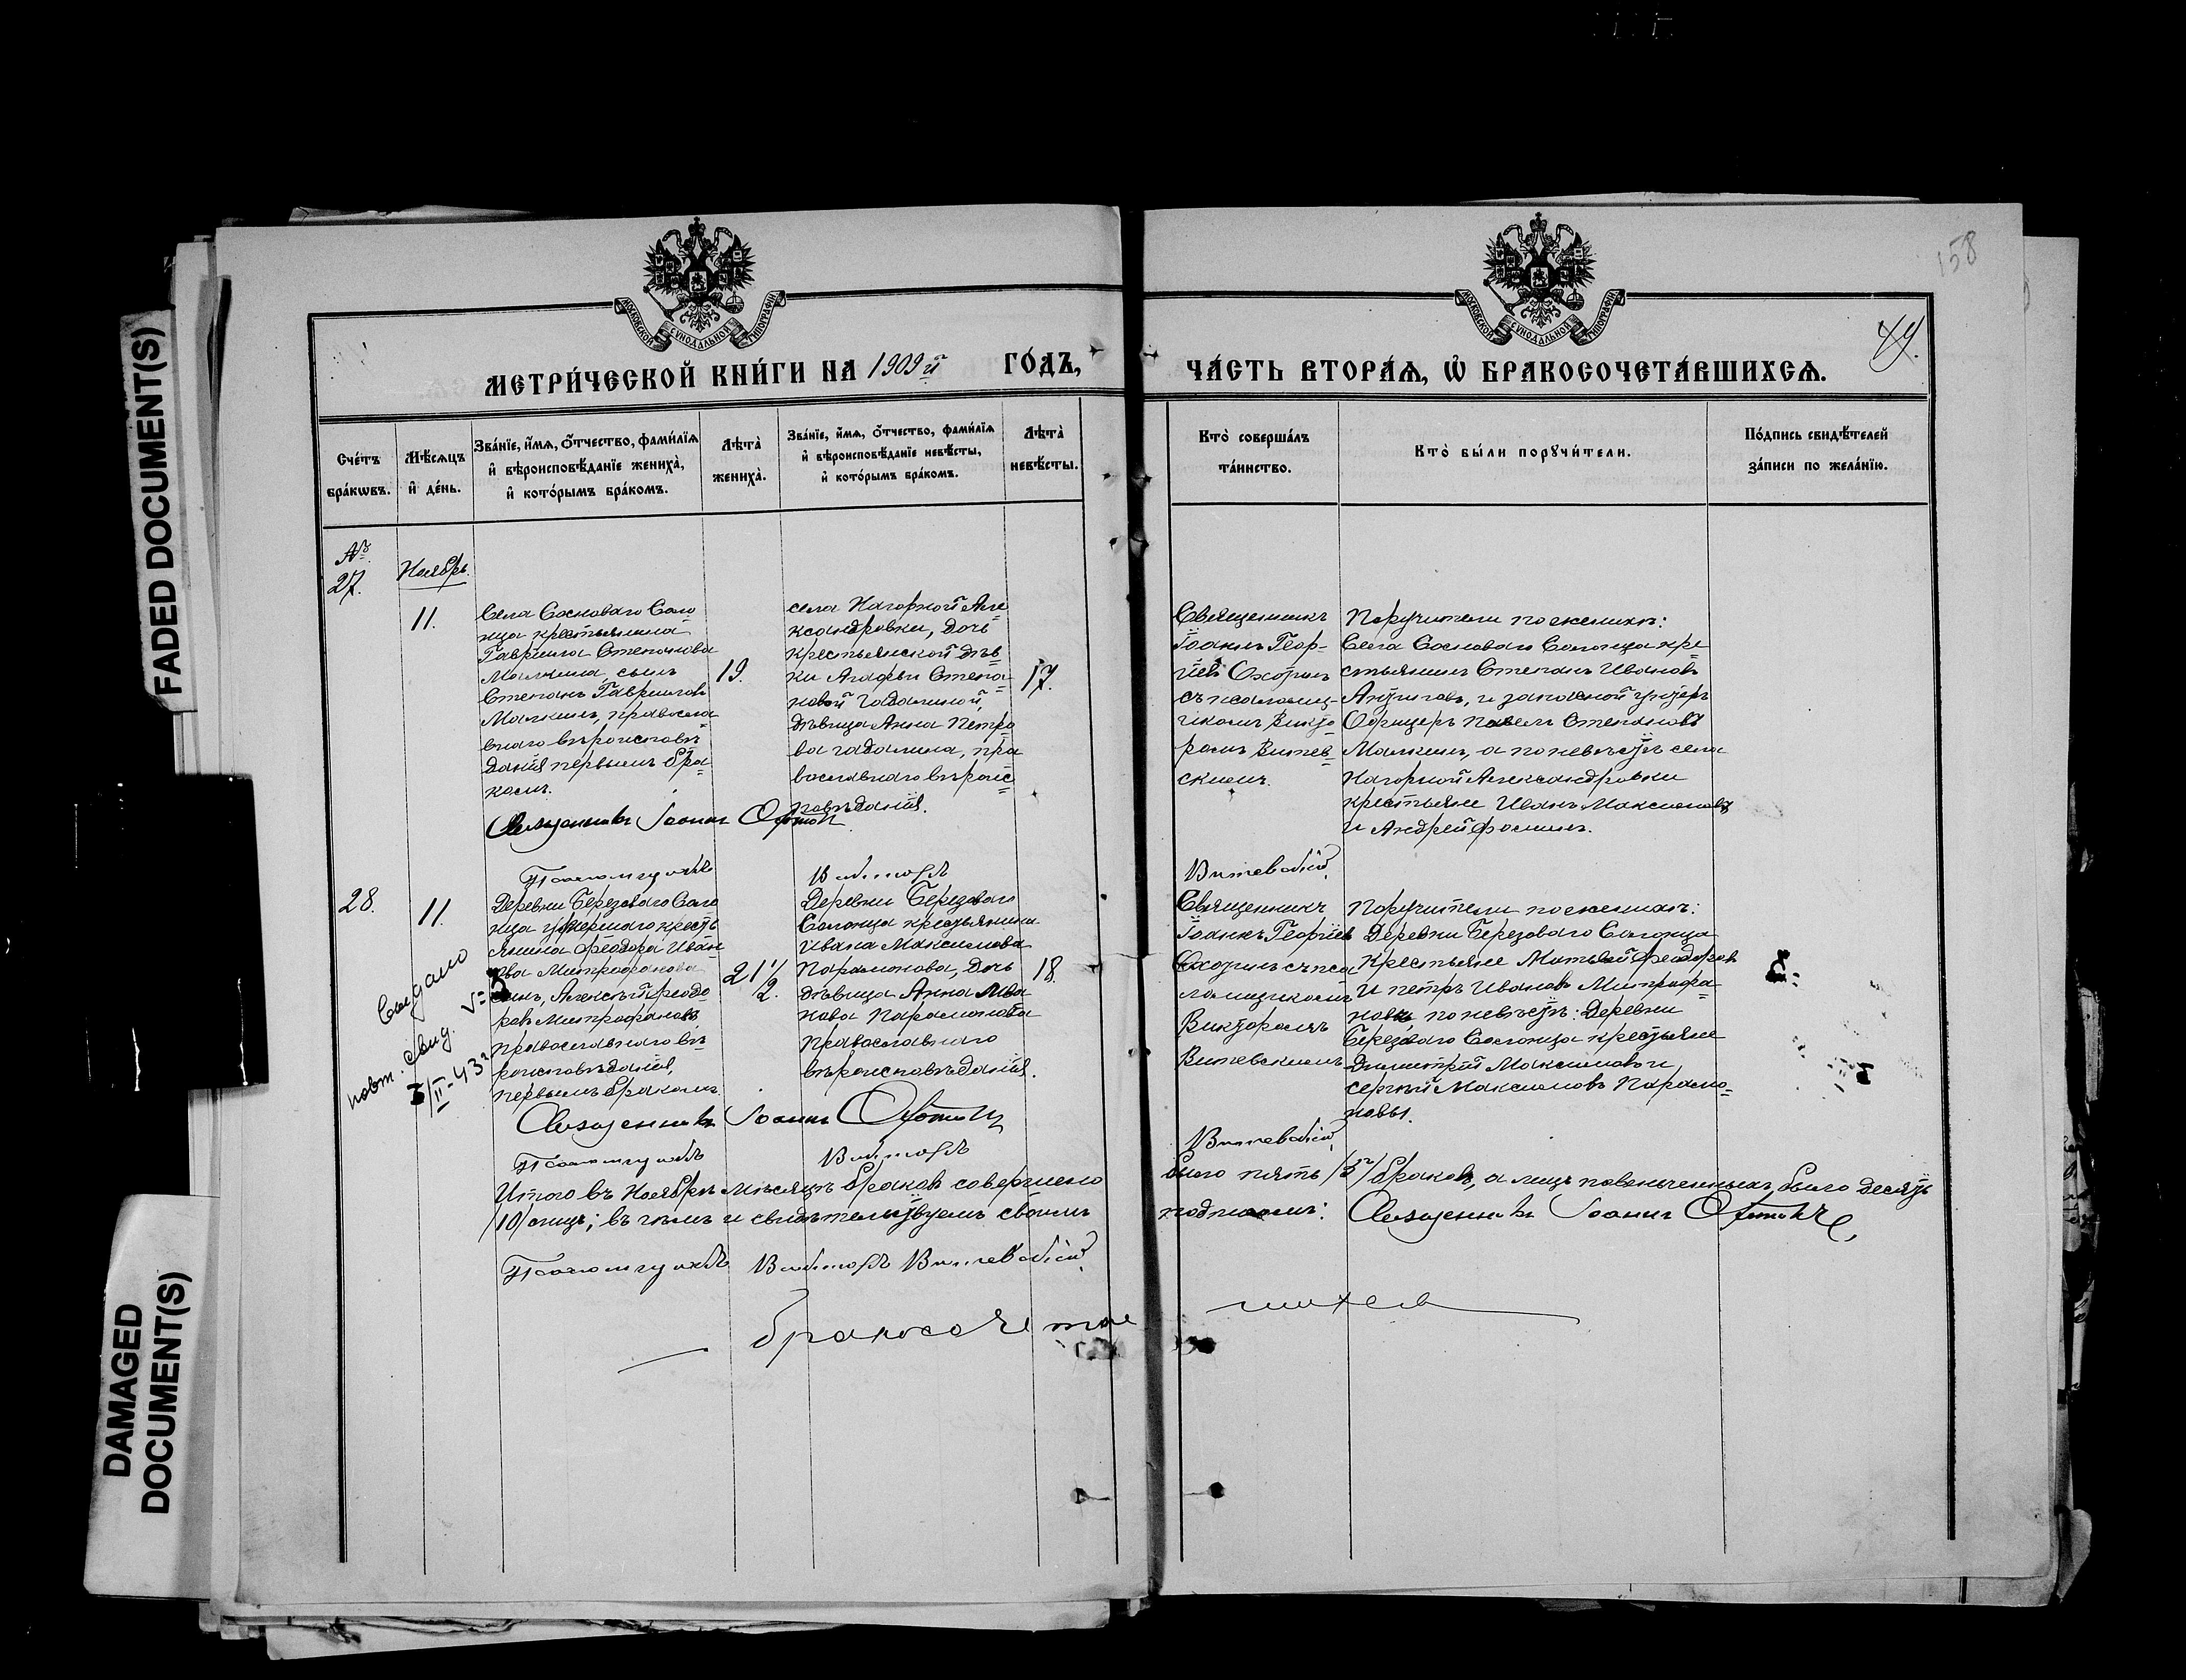 158
49.
МОСКОВСКОЙ СУНОДАЛЬНОЙ ТИПОГРАФІИ
МОСКОВСКОЙ СУНОДАЛЬНОЙ ТИПОГРАФІИ
МЕТРИ́ЧЕСКОЙ КНИ́ГИ НА 1909й ГО́ДЪ,
ЧА́СТЬ ВТОРА́Ѧ, Ѽ БРАКОСОЧЕТА́ВШИХСѦ.
Сче́тъ
бра́кѡвъ.
Мѣ́сѧцъ
и҆ де́нь.
Зва́нїе, и҆́мѧ, ѻ҆́тчество, фами́лїѧ
и҆ вѣроисповѣ́данїе жениха̀,
и҆ кото́рымъ бра́комъ.
Лѣ́та
жениха̀.
Зва́нїе, и҆́мѧ, ѻ҆́тчество, фами́лїѧ
и҆ вѣроисповѣ́данїе невѣ́сты,
и҆ кото́рымъ бра́комъ.
Лѣ́та
невѣ́сты.
Кто̀ соверша́лъ
та́инство.
Кто̀ бы́ли порꙋчи́тели.
По́дпись свидѣ́телей
за́писи по жела́нїю.
№
27.
Ноябрь.
11.
Села Сосноваго Соло
нца крестьянина
Гавріила Степанова
Малкина, сынъ
Степанъ Гавриловъ
Малкинъ, правосла
внаго вѣроисповѣ
данія первымъ бра
комъ.
19.
села Нагорной Але
ксандровки, дочь
крестьянской дѣв
ки Агафьи Степа
новой Гадалиной,
дѣвица Анна Петро
ва Гадалина, пра
вославнаго вѣроис
повѣданія.
17.
Священникъ
Іоаннъ Геор-
гіевъ Охотин
съ псаломщ-
икомъ Викто
ромъ Витев
скимъ.
Поручители по женихѣ:
Села Сосноваго Солонца кре
стьянинъ Степанъ Ивановъ
и запасной унтеръ
Офицеръ Павелъ Степановъ
Малкинъ, а по невѣстѣ села
Нагорной Александровки
крестьяне Иванъ Максимовъ
и Андрей Фоминъ.
Священникъ Іоаннъ Охотин
Псаломщикъ Викторъ Витевскій
28.
11.
Деревни Березоваго Соло
нца умершаго кресть
янина Ѳеодора Иван
ова Митрофанова
сынъ, Алексѣй Ѳеодо
ровъ Митрофановъ
православнаго вѣ
роисповѣданія,
первымъ бракомъ.
21 1/2.
Деревни Березоваго
Солонца крестьянина
Ивана Максимова
Парамонова, дочь
дѣвица Анна Ива
нова Парамонова
православнаго
вѣроисповѣданія.
18.
Священникъ
Іоаннъ Георгіев
Охотинъ съ пса
ломщикомъ
Викторомъ
Витевскимъ
Поручители по женихѣ:
Деревни Березоваго Солонца
крестьяне Матвей Ѳеодоров
и Петръ Ивановъ Митрофа
новы, по невѣстѣ: Деревни
Березоваго Солонца крестьяне
Димитрій Максимовъ и
Сергѣй Максимовъ Парамо
новы.
Выдано
повт. свид.
3/II-43 г
Священникъ Іоаннъ Охотин
Псаломщикъ Викторъ Витевскій
Итого въ Ноябрѣ мѣсяцѣ браков совершено было пять /5/ браков, а лицъ повенчанныхъ было десять
/10/ лицъ; въ чѣмъ и свидѣтельствуемъ своимъ подписомъ: Священникъ Іоаннъ Охотин
Псаломщикъ Викторъ Витевскій